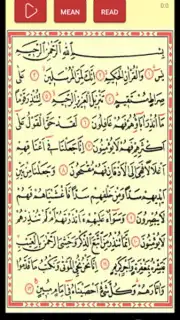 MEAN READ 0:0
بِسْمِ اللهِ الرَّحْمٰنِ الرَّحِيمِ
يٰسٓ ١ وَالْقُرْاٰنِ الْحَكِيمِ ٢ اِنَّكَ لَمِنَ الْمُرْسَلِينَ ٣ عَلٰى
صِرَاطٍ مُسْتَقِيمٍ ٤ تَنْزِيلَ الْعَزِيزِ الرَّحِيمِ ٥ لِتُنْذِرَ قَوْمًا
مَٓا اُنْذِرَ اٰبَٓاؤُهُمْ فَهُمْ غَافِلُونَ ٦ لَقَدْ حَقَّ الْقَوْلُ عَلٰٓى
اَكْثَرِهِمْ فَهُمْ لَا يُؤْمِنُونَ ٧ اِنَّا جَعَلْنَا فِٓى اَعْنَاقِهِمْ
اَغْلَالًا فَهِىَ اِلَى الْاَذْقَانِ فَهُمْ مُقْمَحُونَ ٨ وَجَعَلْنَا مِنْ بَيْنِ
اَيْدِيهِمْ سَدًّا وَمِنْ خَلْفِهِمْ سَدًّا فَاَغْشَيْنَاهُمْ فَهُمْ
لَا يُبْصِرُونَ ٩ وَسَوَٓاءٌ عَلَيْهِمْ ءَاَنْذَرْتَهُمْ اَمْ لَمْ تُنْذِرْهُمْ
لَا يُؤْمِنُونَ ١٠ اِنَّمَا تُنْذِرُ مَنِ اتَّبَعَ الذِّكْرَ وَخَشِىَ الرَّحْمٰنَ بِالْغَيْبِ
فَبَشِّرْهُ بِمَغْفِرَةٍ وَاَجْرٍ كَرِيمٍ ١١ اِنَّا نَحْنُ نُحْيِى الْمَوْتٰى وَنَكْتُبُ مَا قَدَّمُوا
وَاٰثَارَهُمْ وَكُلَّ شَىْءٍ اَحْصَيْنَاهُ فِٓى اِمَامٍ مُبِينٍ ١٢